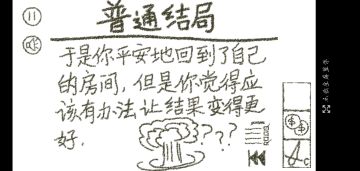 普通结局
于是你平安地回到了自己
的房间，但是你觉得应
该有办法让结果变得更
好.
???